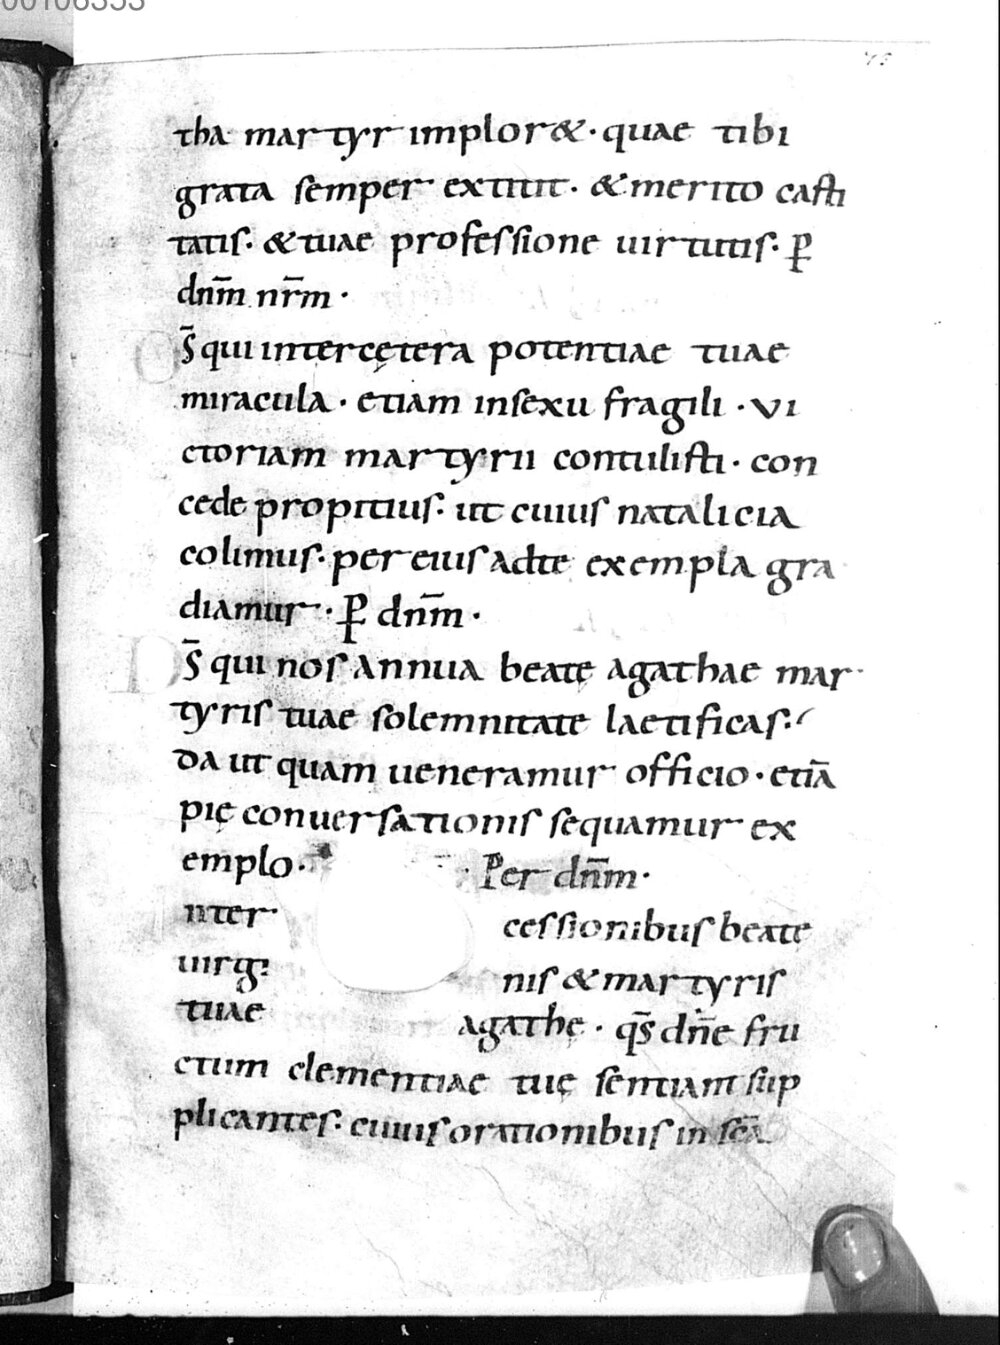 00106353
75
tha martyr implor&· quae tibi
grata semper extitit· & merito casti
tatis· & tuae professione uirtutis· ꝑ
dnm̄ nr̄m·
Ds̄ qui inter cętera potentiae tuae
miracula· etiam insexu fragili· vi
ctoriam martyrii contulisti· con
cede propitius· ut cuius natalicia
colimus· per eius adte exempla gra
diamur· ꝑ dnm̄·
Ds̄ qui nos annua beatę agathae mar
tyris tuae solemnitate laetificas·
da ut quam ueneramur officio· etiā
pię conuersationis sequamur ex
emplo· Per dnm̄·
nter cessionibus beatę
uirgi nis & martyris
tuae agathę· qs̄ dn̄e fru
ctum clementiae tuę sentiant sup
plicantes· cuius orationibus in scā